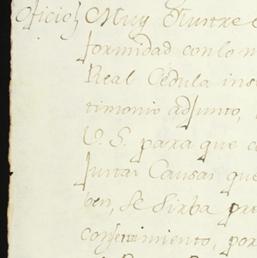 Oficio} Muy Ilustre
formidad con lo
Real Cedula ins
timonio adjunto,
U. S. para que
Juntas Causas que
ben, se sirba pre
consentimiento, por